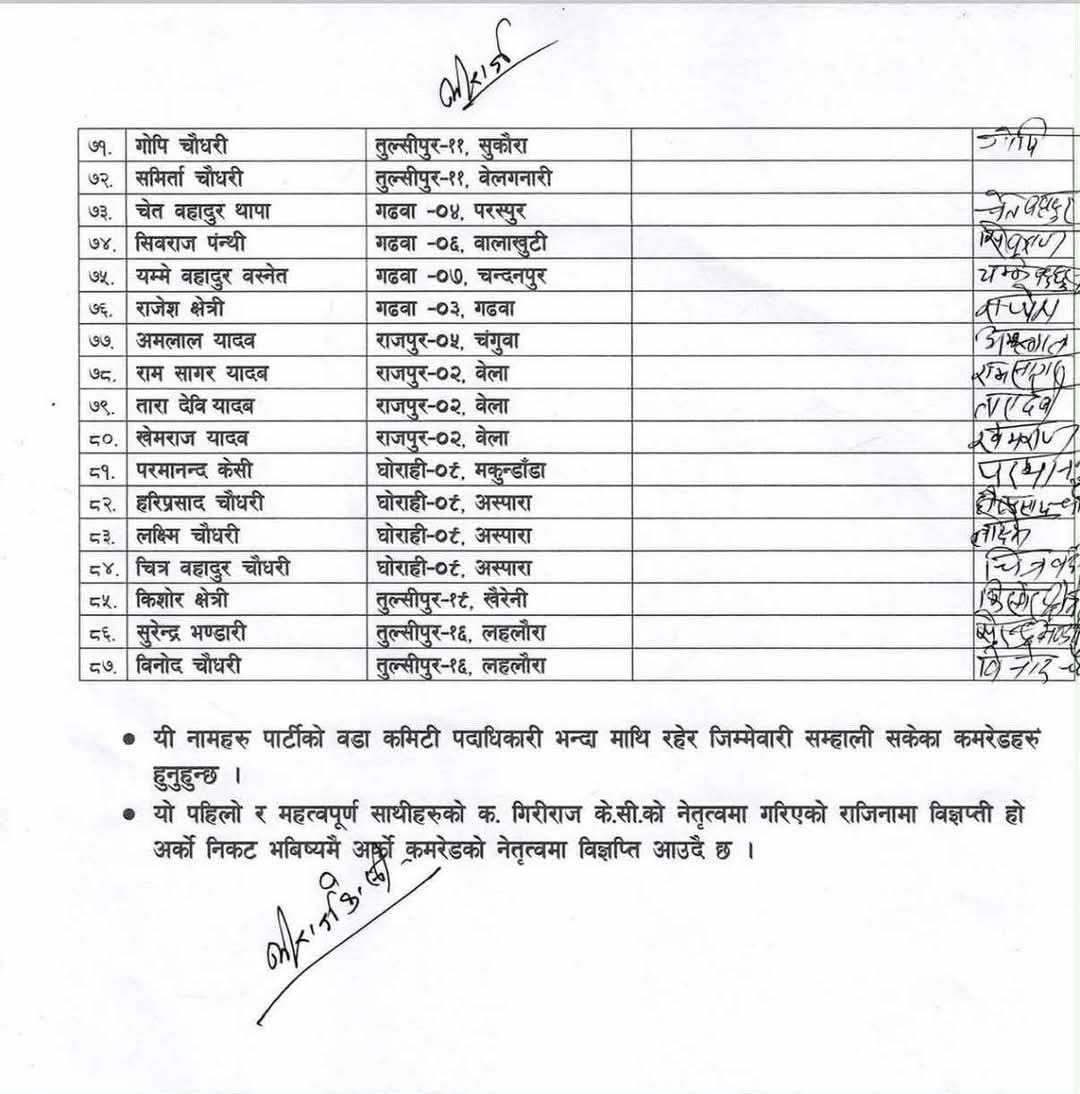 ७१. गोपि चौधरी तुल्सीपुर-११, सुकौरा गोपि
७२. समिर्ता चौधरी तुल्सीपुर-११, वेलगनारी
७३. चेत वहादुर थापा गढवा -०४, परस्पुर चेत वहादुर
७४. सिवराज पंन्थी गढवा -०६, वालाखुटी सिवराज
७५. यम्मे वहादुर वस्नेत गढवा -०७, चन्दनपुर
७६. राजेश क्षेत्री गढवा -०३, गढवा
७७. अमलाल यादव राजपुर-०५, चंगुवा
७८. राम सागर यादब राजपुर-०२, वेला
७९. तारा देवि यादब राजपुर-०२, वेला
८०. खेमराज यादव राजपुर-०२, वेला खेमराज
८१. परमानन्द केसी घोराही-०९, मकुन्डाँडा
८२. हरिप्रसाद चौधरी घोराही-०९, अस्पारा
८३. लक्ष्मि चौधरी घोराही-०९, अस्पारा
८४. चित्र वहादुर चौधरी घोराही-०९, अस्पारा
८५. किशोर क्षेत्री तुल्सीपुर-१९, खैरेनी
८६. सुरेन्द्र भण्डारी तुल्सीपुर-१६, लहलौरा
८७. विनोद चौधरी तुल्सीपुर-१६, लहलौरा
• यी नामहरु पार्टीको वडा कमिटी पदाधिकारी भन्दा माथि रहेर जिम्मेवारी सम्हाली सकेका कमरेडहरु
हुनुहुन्छ ।
• यो पहिलो र महत्वपूर्ण साथीहरुको क. गिरीराज के.सी.को नेतृत्वमा गरिएको राजिनामा विज्ञप्ती हो
अर्को निकट भबिष्यमै अर्को कमरेडको नेतृत्वमा विज्ञप्ति आउदै छ ।